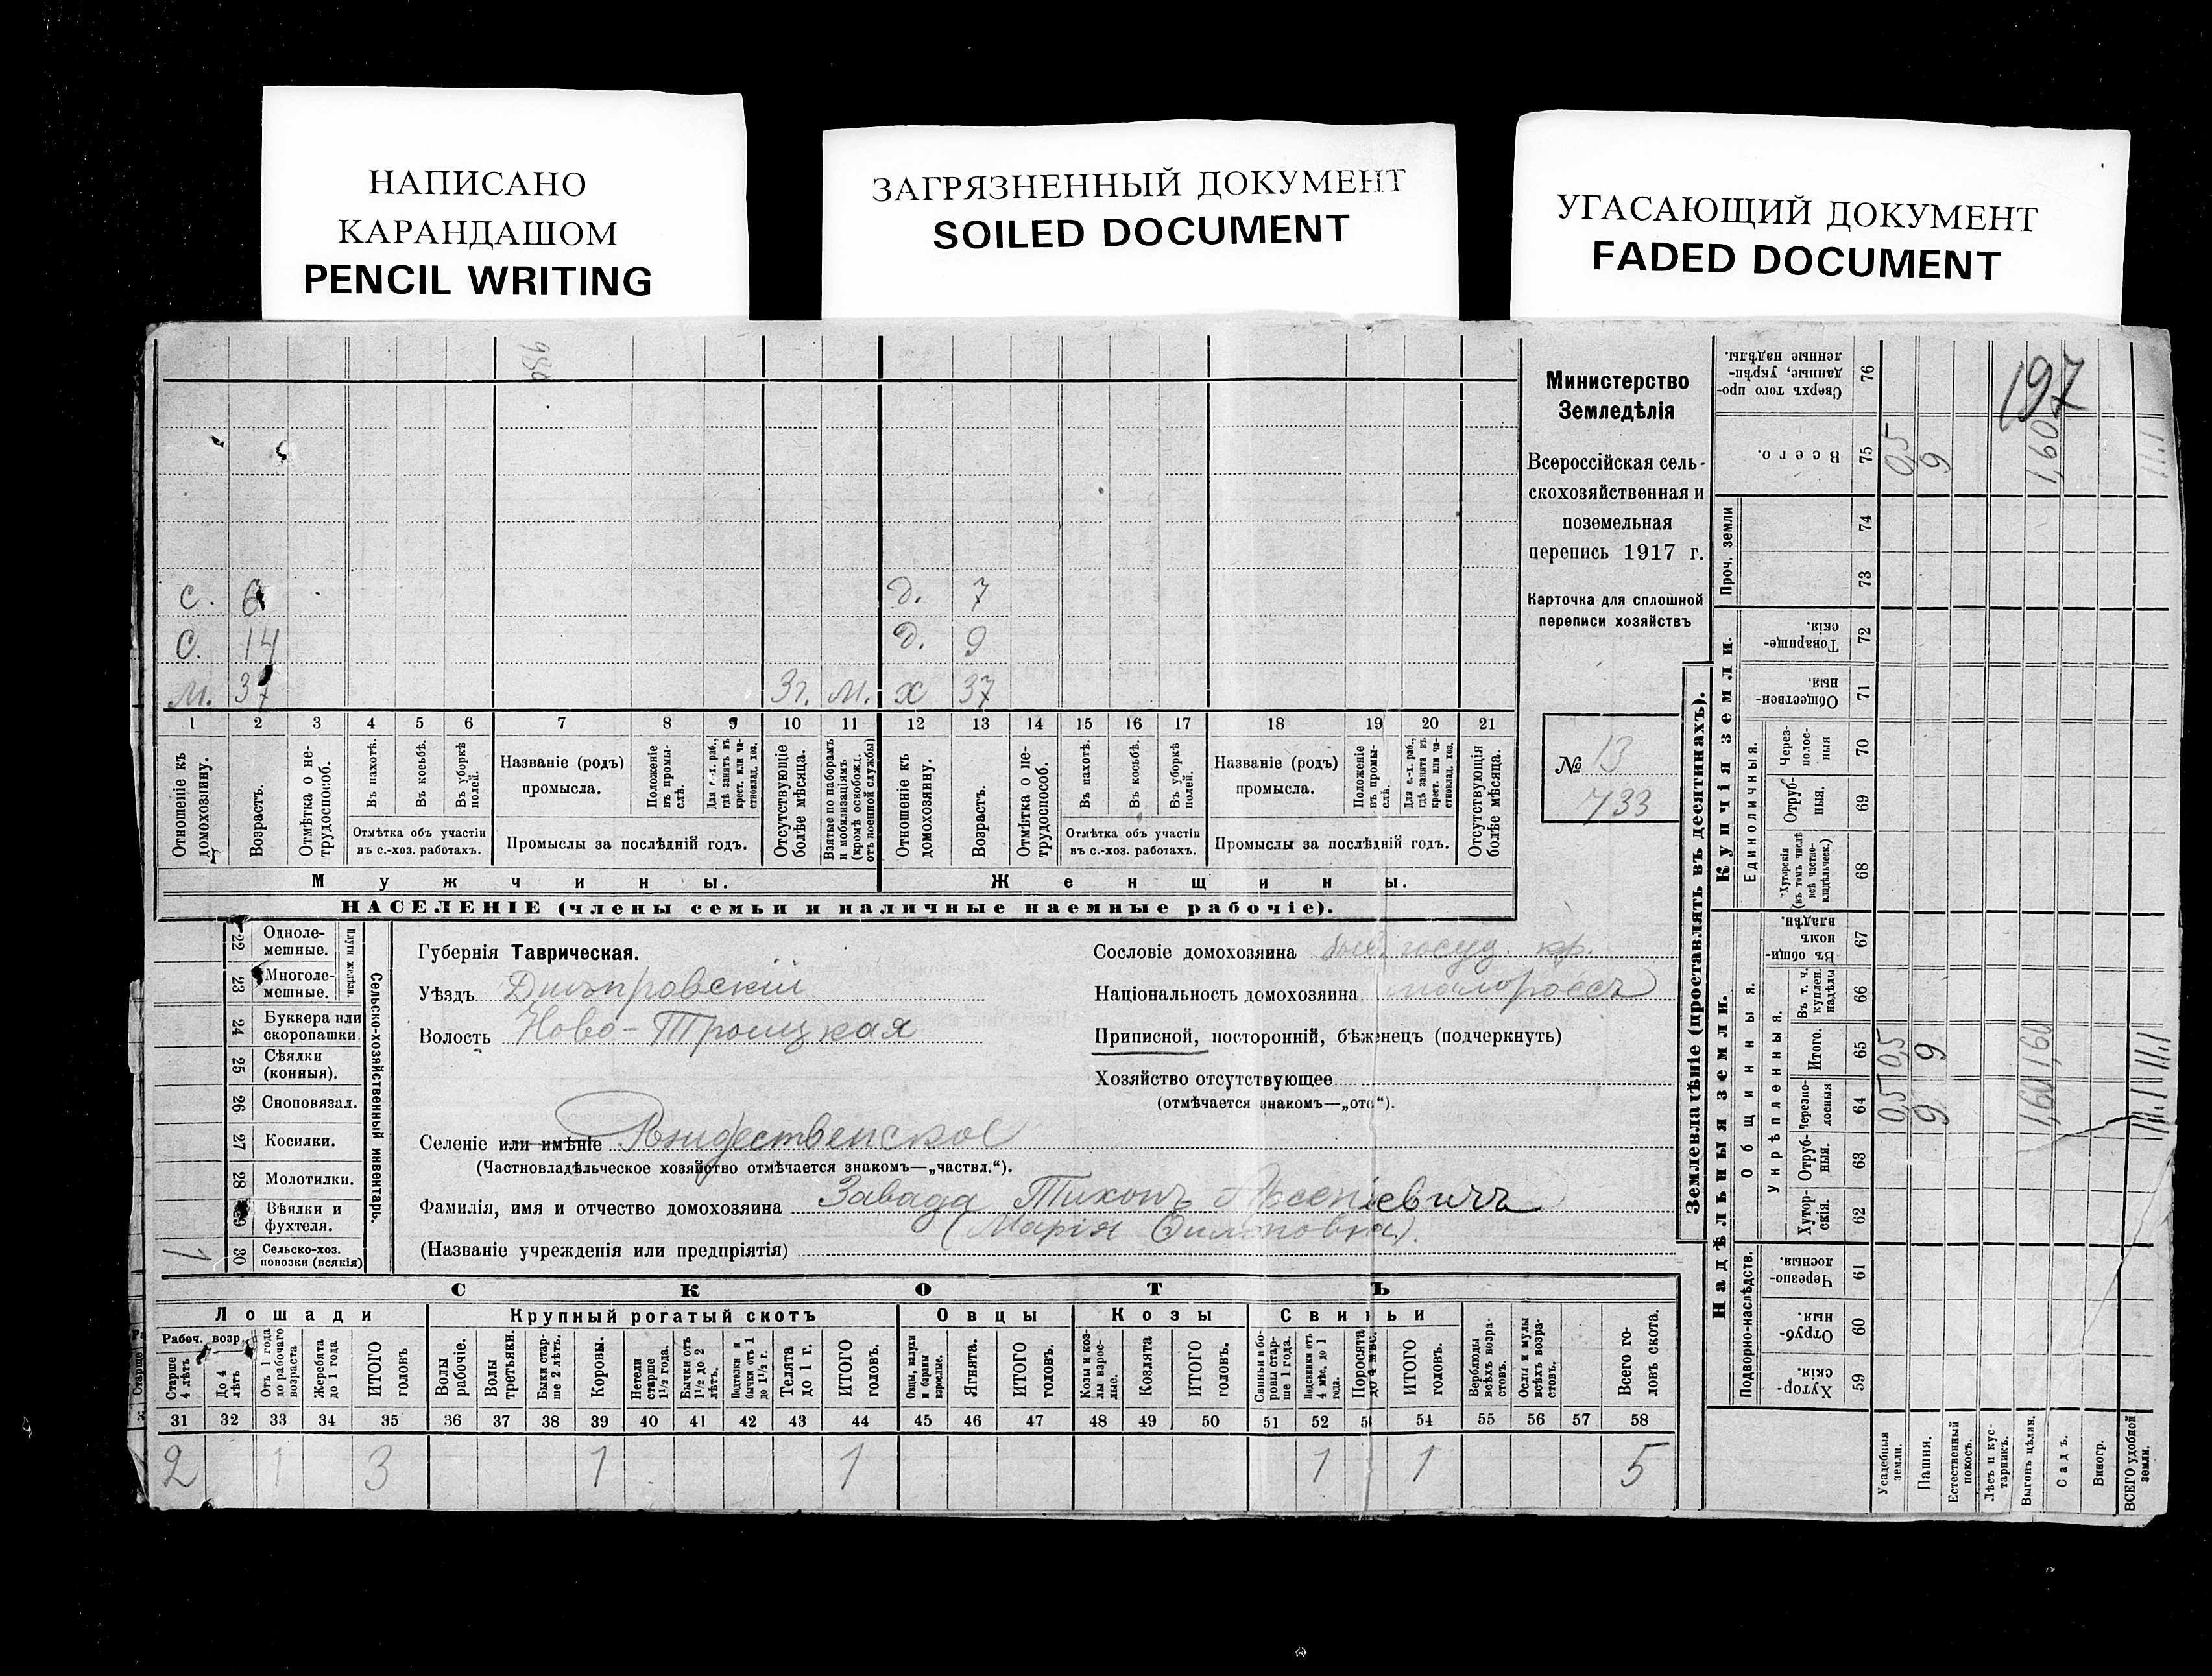 НАПИСАНО
КАРАНДАШОМ
PENCIL WRITING
ЗАГРЯЗНЕННЫЙ ДОКУМЕНТ
SOILED DOCUMENT
УГАСАЮЩИЙ ДОКУМЕНТ
FADED DOCUMENT
с. 6 д. 7
с. 14 д. 9
м. 37 3г. м. х 37
1 2 3 4 5 6 7 8 9 10 11 12 13 14 15 16 17 18 19 20 21
Отношеніе къ домохозяину.
Возрастъ.
Отмѣтка о нетрудоспособ.
Въ пахотѣ.
Въ косьбѣ.
Въ уборкѣ полей.
Отмѣтка объ участіи
въ с.-хоз. работахъ.
Названіе (родъ)
промысла.
Положеніе въ промыслѣ.
Для с.-х. раб., гдѣ занятъ въ крест. или частновлад. хоз.
Промыслы за послѣдній годъ.
Отсутствующіе болѣе мѣсяца.
Взятые по наборамъ и мобилизаціямъ (кромѣ освобожд. отъ военной службы)
Отношеніе къ домохозяину.
Возрастъ.
Отмѣтка о нетрудоспособ.
Въ пахотѣ.
Въ косьбѣ.
Въ уборкѣ полей.
Отмѣтка объ участіи
въ с.-хоз. работахъ.
Названіе (родъ)
промысла.
Положеніе въ промыслѣ.
Для с.-х. раб., гдѣ занята въ крест. или частновлад. хоз.
Промыслы за послѣдній годъ.
Отсутствующія болѣе мѣсяца.
Мужчины. Женщины.
НАСЕЛЕНІЕ (члены семьи и наличные наемные рабочіе).
Министерство
Земледѣлія
Всероссійская сель-
скохозяйственная и
поземельная
перепись 1917 г.
Карточка для сплошной
переписи хозяйствъ
№ 13
733
22 Однолемешные.
23 Многолемешные.
Плуги желѣзн.
24 Буккера или скоропашки
25 Сѣялки (конныя).
26 Сноповязал.
27 Косилки.
28 Молотилки.
29 Вѣялки и фухтеля.
30 Сельско-хоз. повозки (всякія) 1
Сельско-хозяйственный инвентарь.
Губернія Таврическая.
Уѣздъ Днѣпровскій
Волость Ново-Троицкая
Селеніе или имѣніе Рождественское
(Частновладѣльческое хозяйство отмѣчается знакомъ—„частвл.“).
Фамилія, имя и отчество домохозяина Завада Тихонъ Арсеніевичъ
(Марія
(Названіе учрежденія или предпріятія)
Сословіе домохозяина быв. госуд. кр.
Національность домохозяина малороссъ
Приписной, посторонній, бѣженецъ (подчеркнуть)
Хозяйство отсутствующее
(отмѣчается знакомъ—„отс“).
СКОТЪ
Лошади Крупный рогатый скотъ Овцы Козы Свиньи
Рабоч. возр.
Старше 4 лѣтъ
До 4 лѣтъ
Отъ 1 года до рабочаго возраста
Жеребята до 1 года
ИТОГО головъ
Волы рабочіе.
Волы третьяки.
Быки старше 2 лѣтъ.
Коровы.
Нетели старше 1½ года.
Бычки отъ 1½ до 2 лѣтъ.
Подтелки и бычки отъ 1 до 1½ г.
Телята до 1 г.
ИТОГО головъ.
Овцы, валухи и бараны взрослые.
Ягнята.
ИТОГО головъ.
Козы и козлы взрослые.
Козлята
ИТОГО головъ.
Свиньи и боровы старше 1 года.
Подсвинки отъ 4 мѣс. до 1 года.
Поросята до 4 мѣс.
ИТОГО головъ.
Верблюды всѣхъ возрастовъ.
Ослы и мулы всѣхъ возрастовъ.
Всего головъ скота.
31 32 33 34 35 36 37 38 39 40 41 42 43 44 45 46 47 48 49 50 51 52 53 54 55 56 57 58
2 1 3 1 1 1 1 5
Землевладѣніе (проставлять въ десятинахъ).
Надѣльныя земли. Купчія земли.
Подворно-наслѣдств.
Общинныя.
Укрѣпленныя.
Единоличныя.
Проч. земли
Сверхъ того проданные, укрѣпленные надѣлы. 76
Всего. 75
74
73
Товарищескія. 72
Общественныя. 71
Черезполосныя 70
Отрубныя. 69
Хуторскія (въ томъ числѣ всѣ частновладѣльческ.) 68
Въ общинномъ владѣн. 67
Въ т. ч. куплен. надѣлы 66
Итого. 65
Черезполосныя 64
Отрубныя. 63
Хуторскія. 62
Черезполосныя. 61
Отрубныя 60
Хуторскія. 59
Усадебныя земли.
Пашня.
Естественный покосъ.
Лѣсъ и кустарникъ.
Выгонъ цѣлин.
Садъ.
Виногр.
ВСЕГО удобной земли.
197
0,5 9 1,60 11.1
0,5 9 1,60 11.1
0,5 9 1,60 11.1